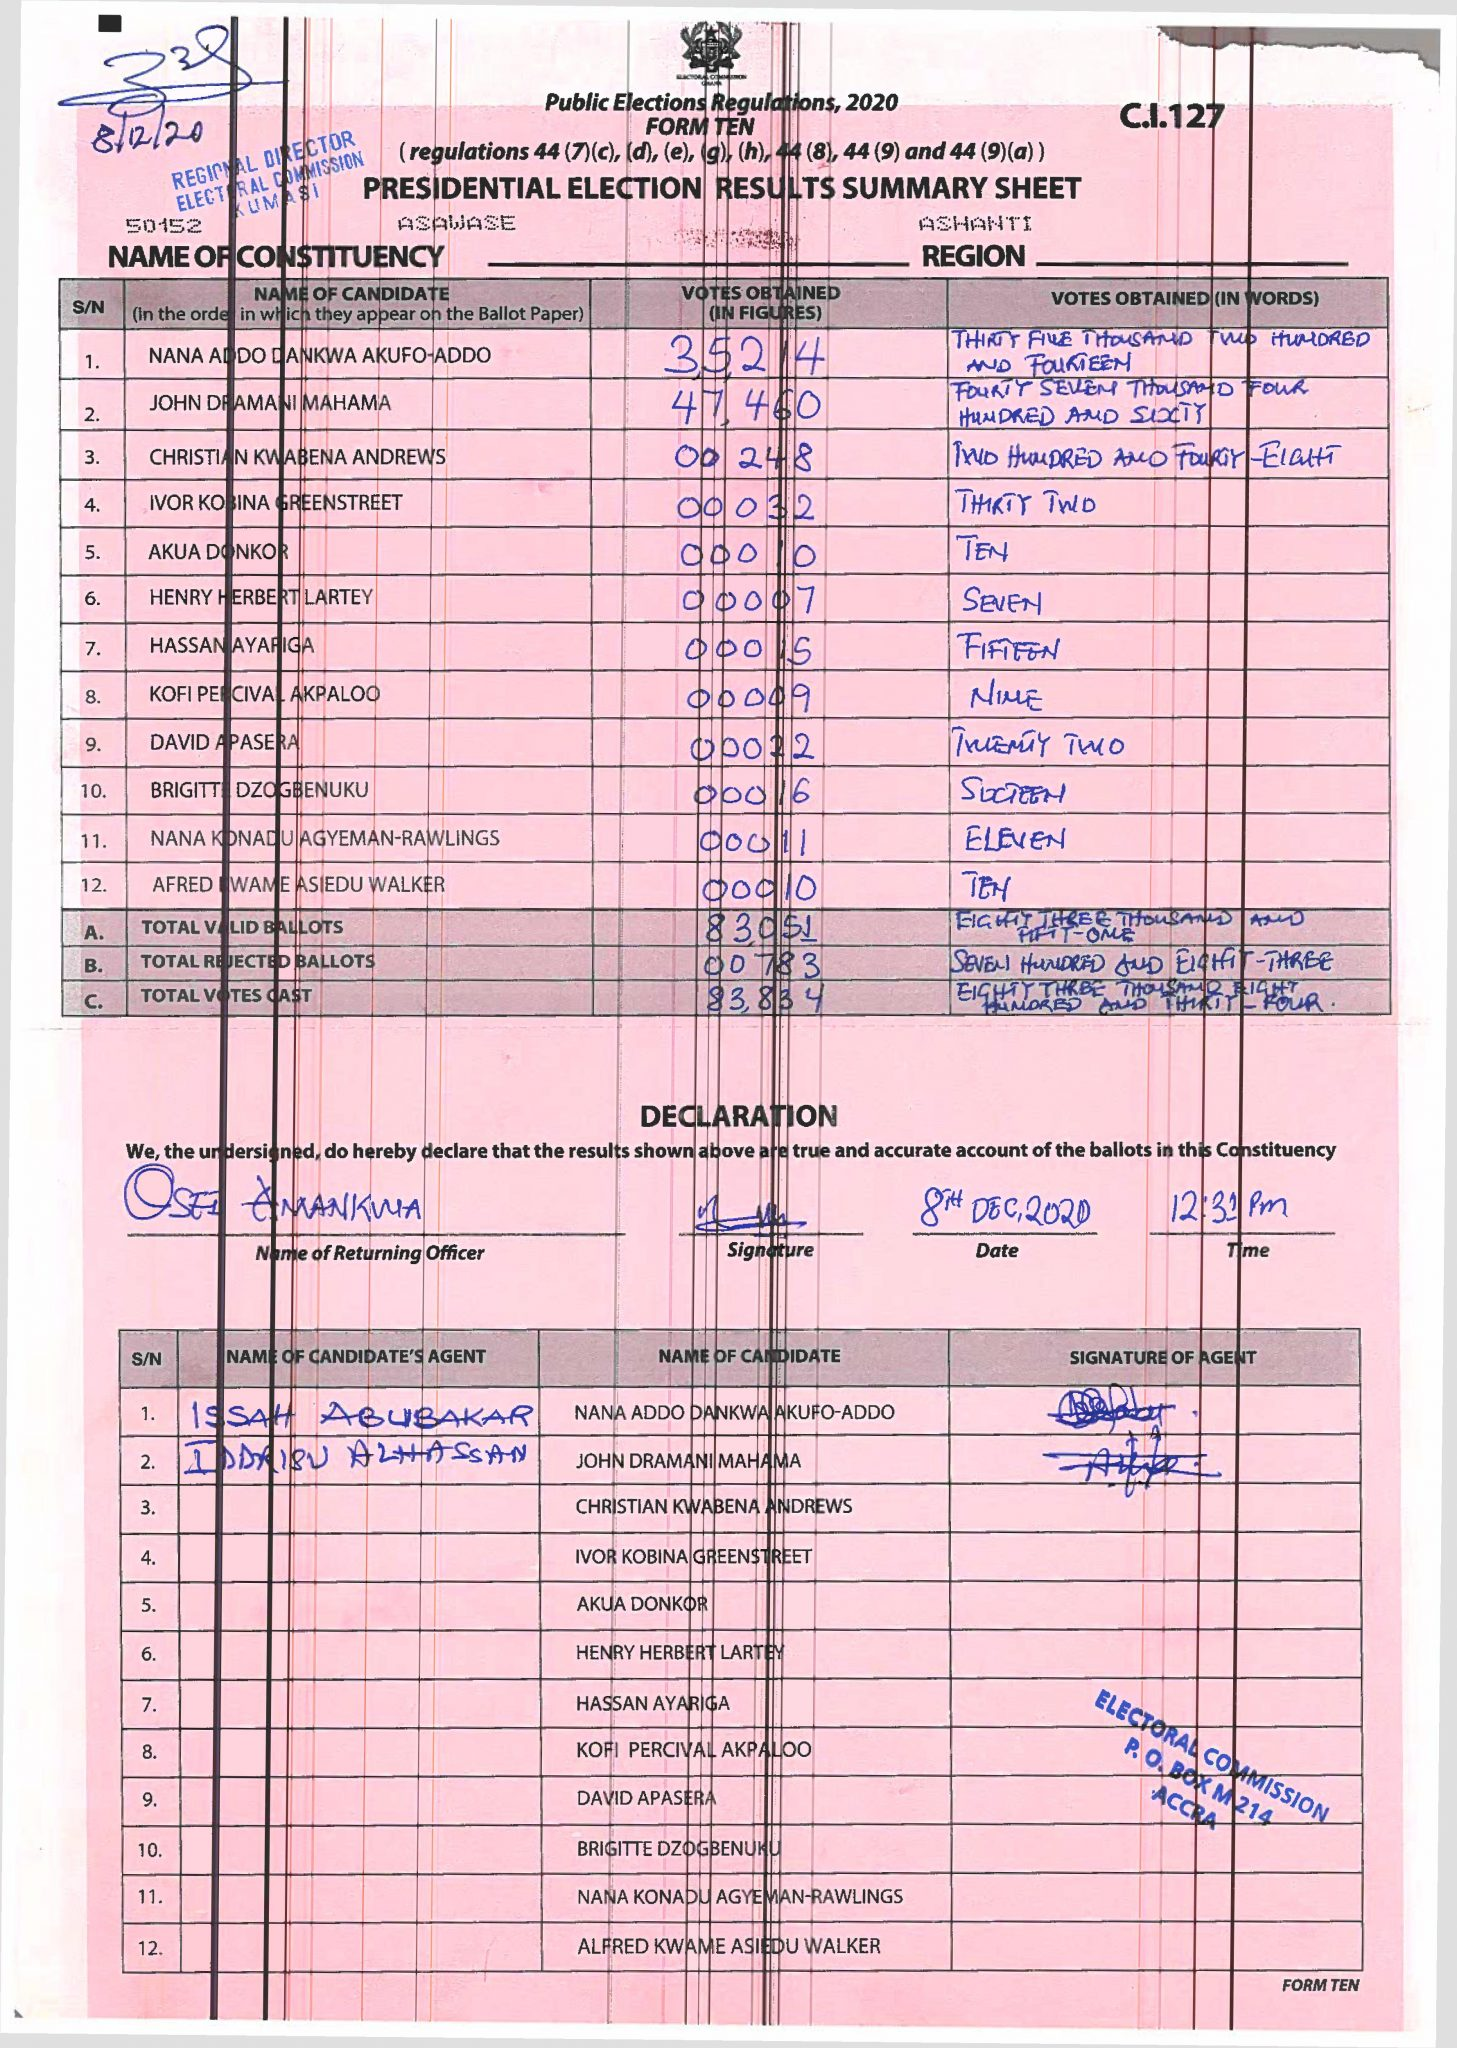 8/12/20
REGIONAL DIRECTOR
ELECTORAL COMMISSION
KUMASI
ELECTORAL COMMISSION
GHANA
Public Elections Regulations, 2020
FORM TEN
C.I.127
( regulations 44 (7)(c), (d), (e), (g), (h), 44 (8), 44 (9) and 44 (9)(a) )
PRESIDENTIAL ELECTION RESULTS SUMMARY SHEET
50152 ASAWASE ASHANTI
NAME OF CONSTITUENCY REGION
S/N NAME OF CANDIDATE VOTES OBTAINED VOTES OBTAINED (IN WORDS)
(in the order in which they appear on the Ballot Paper) (IN FIGURES)
1. NANA ADDO DANKWA AKUFO-ADDO 35,214 THIRTY FIVE THOUSAND TWO HUNDRED
AND FOURTEEN
2. JOHN DRAMANI MAHAMA 47,460 FOURTY SEVEN THOUSAND FOUR
HUNDRED AND SIXTY
3. CHRISTIAN KWABENA ANDREWS 00 248 TWO HUNDRED AND FOURTY-EIGHT
4. IVOR KOBINA GREENSTREET 00032 THIRTY TWO
5. AKUA DONKOR 00010 TEN
6. HENRY HERBERT LARTEY 00007 SEVEN
7. HASSAN AYARIGA 00015 FIFTEEN
8. KOFI PERCIVAL AKPALOO 00009 NINE
9. DAVID APASERA 00022 TWENTY TWO
10. BRIGITTE DZOGBENUKU 00016 SIXTEEN
11. NANA KONADU AGYEMAN-RAWLINGS 00011 ELEVEN
12. AFRED KWAME ASIEDU WALKER 00010 TEN
A. TOTAL VALID BALLOTS 83,051 EIGHTY THREE THOUSAND AND
FIFTY-ONE
B. TOTAL REJECTED BALLOTS 00783 SEVEN HUNDRED AND EIGHTY-THREE
C. TOTAL VOTES CAST 83,834 EIGHTY THREE THOUSAND EIGHT
HUNDRED AND THIRTY-FOUR.
DECLARATION
We, the undersigned, do hereby declare that the results shown above are true and accurate account of the ballots in this Constituency
OSEI AMANKWA 8TH DEC, 2020 12:31 PM
Name of Returning Officer Signature Date Time
S/N NAME OF CANDIDATE'S AGENT NAME OF CANDIDATE SIGNATURE OF AGENT
1. ISSAH ABUBAKAR NANA ADDO DANKWA AKUFO-ADDO
2. IDDRISU ALHASSAN JOHN DRAMANI MAHAMA
3. CHRISTIAN KWABENA ANDREWS
4. IVOR KOBINA GREENSTREET
5. AKUA DONKOR
6. HENRY HERBERT LARTEY
7. HASSAN AYARIGA
8. KOFI PERCIVAL AKPALOO
9. DAVID APASERA
10. BRIGITTE DZOGBENUKU
11. NANA KONADU AGYEMAN-RAWLINGS
12. ALFRED KWAME ASIEDU WALKER
ELECTORAL COMMISSION
P. O. BOX M 214
ACCRA
FORM TEN